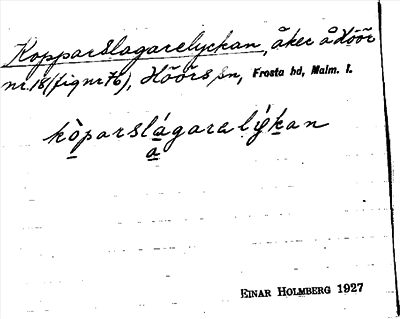 Kopparslagarelyckan, åker å Höör
nr 18 (fig nr 76), Höörs sn, Frosta hd, Malm. l.
kòparslágaralýkan
a
EINAR HOLMBERG 1927